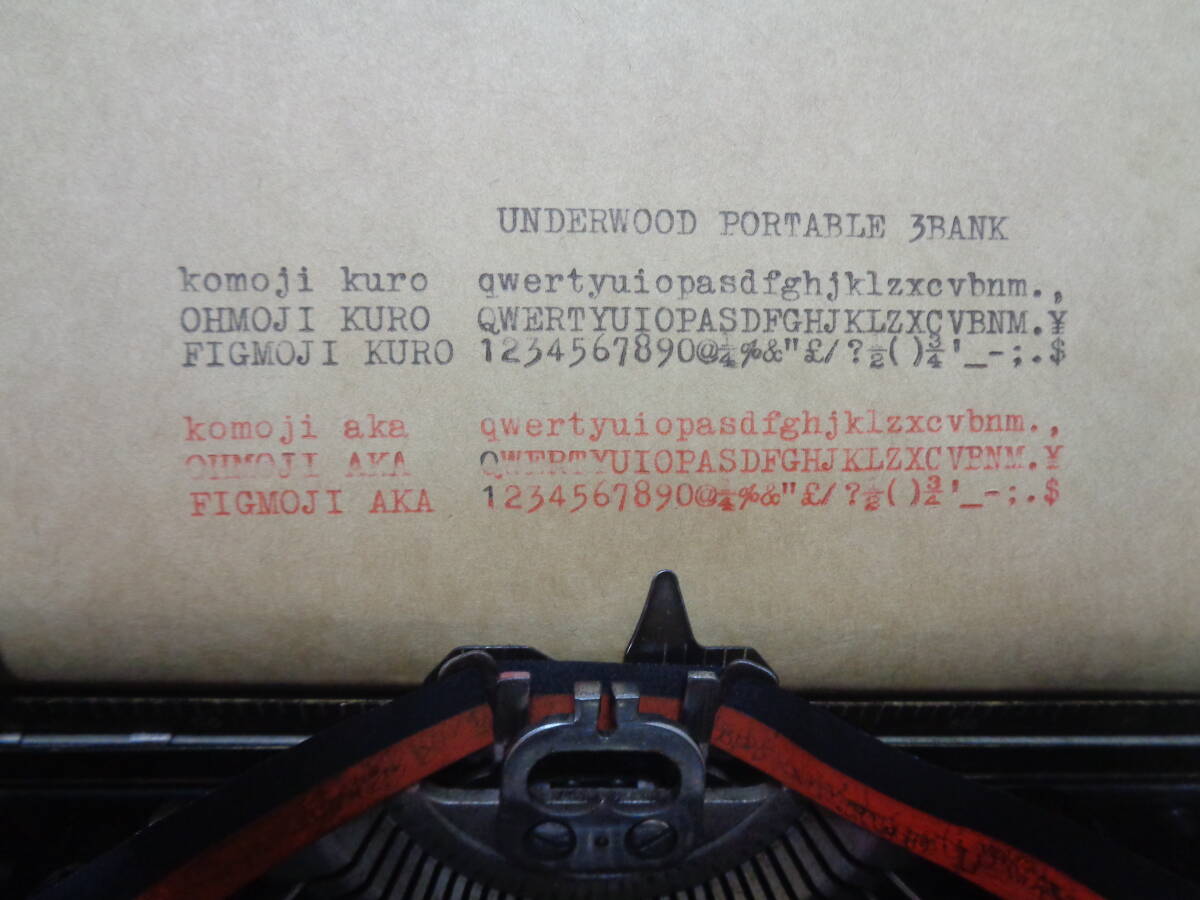 UNDERWOOD PORTABLE 3BANK
komoji kuro qwertyuiopasdfghjklzxcvbnm.,
OHMOJI KURO QWERTYUIOPASDFGHJKLZXCVBNM.¥
FIGMOJI KURO 1234567890@¼%&"£/?½()¾'_-;.$
komoji aka qwertyuiopasdfghjklzxcvbnm.,
OHMOJI AKA QWERTYUIOPASDFGHJKLZXCVBNM.¥
FIGMOJI AKA 1234567890@¼%&"£/?½()¾'_-;.$